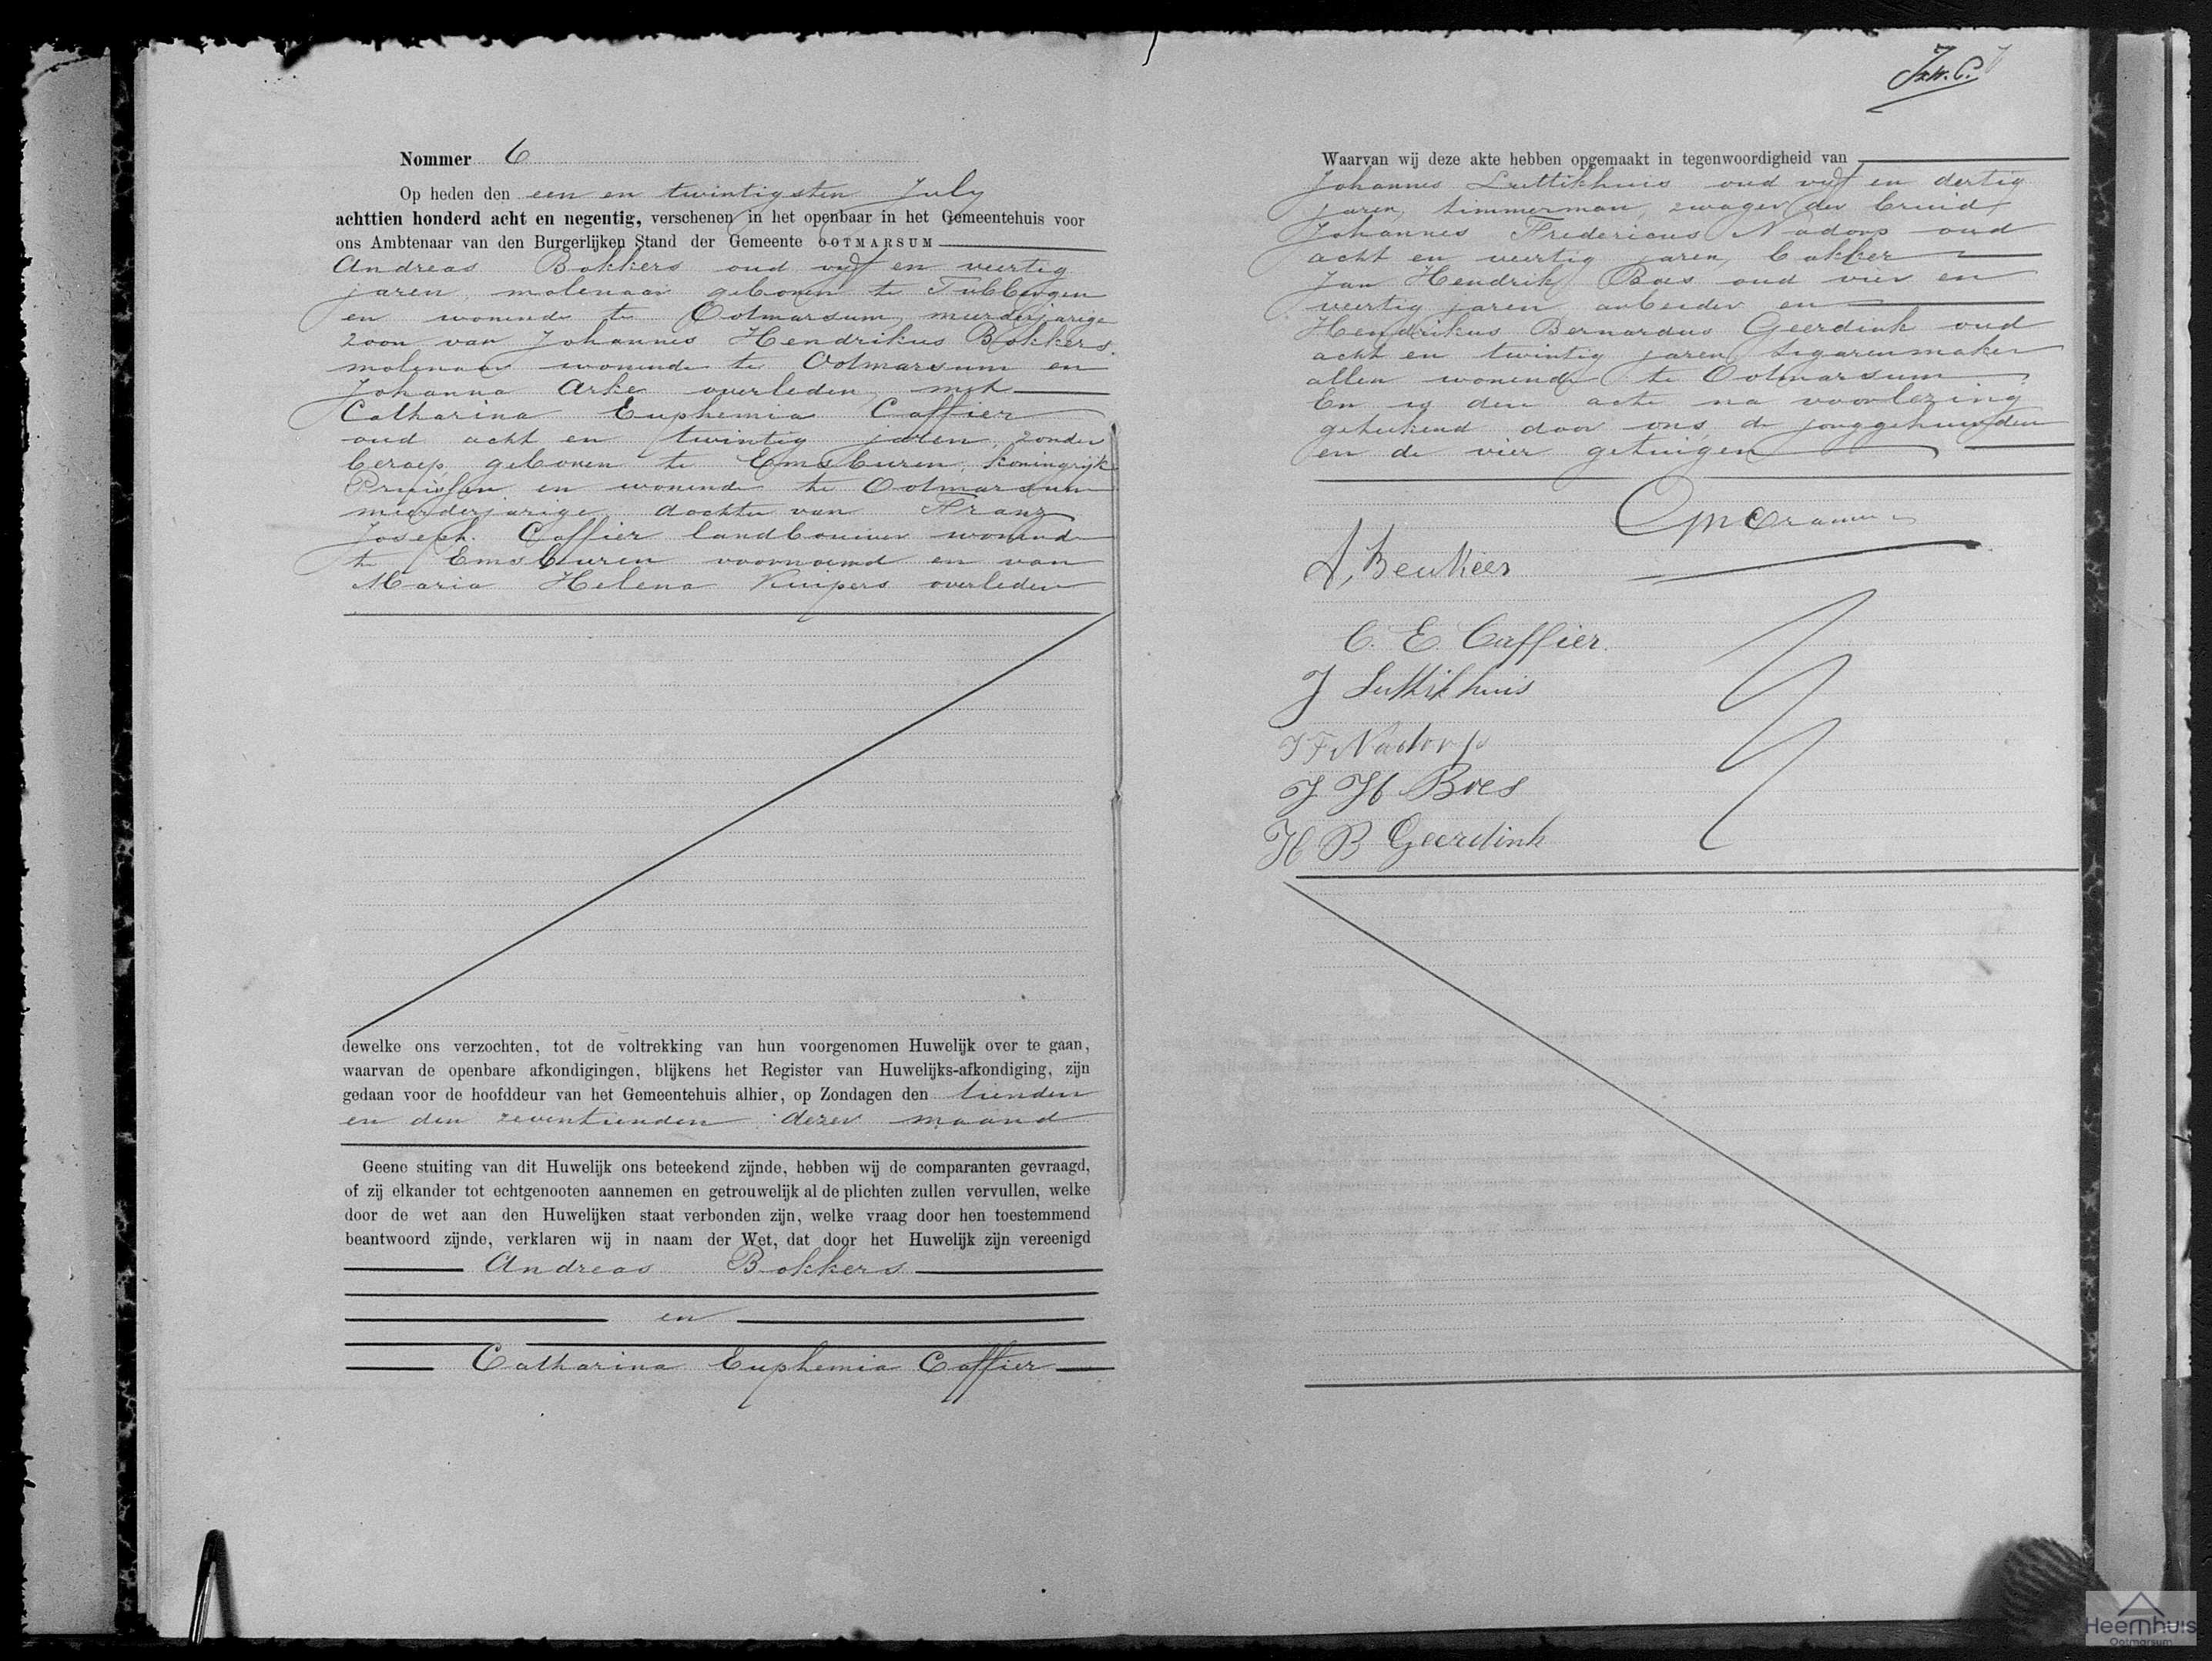 Nommer 6
Op heden den een en twintigsten July
achttien honderd acht en negentig, verschenen in het openbaar in het Gemeentehuis voor
ons Ambtenaar van den Burgerlijken Stand der Gemeente OOTMARSUM
Andreas Bokkers oud vijf en veertig
jaren, molenaar geboren te Tubbergen
en wonende te Ootmarsum, meerderjarige
zoon van Johannes Hendrikus Bokkers
molenaar wonende te Ootmarsum en
Johanna Arke overleden, met
Catharina Euphemia Caffier
oud acht en twintig jaren, zonder
beroep, geboren te Emsburen, koningrijk
Pruissen en wonende te Ootmarsum
meerderjarige dochter van Franz
Joseph Caffier landbouwer wonende
te Emsburen voornoemd en van
Maria Helena Kuipers overleden
dewelke ons verzochten, tot de voltrekking van hun voorgenomen Huwelijk over te gaan,
waarvan de openbare afkondigingen, blijkens het Register van Huwelijks-afkondiging, zijn
gedaan voor de hoofddeur van het Gemeentehuis alhier, op Zondagen den tienden
en den zeventienden dezer maand
Geene stuiting van dit Huwelijk ons beteekend zijnde, hebben wij de comparanten gevraagd,
of zij elkander tot echtgenooten aannemen en getrouwelijk al de plichten zullen vervullen, welke
door de wet aan den Huwelijken staat verbonden zijn, welke vraag door hen toestemmend
beantwoord zijnde, verklaren wij in naam der Wet, dat door het Huwelijk zijn vereenigd
Andreas Bokkers
en
Catharina Euphemia Caffier
Waarvan wij deze akte hebben opgemaakt in tegenwoordigheid van
Johannes Luttikhuis oud vijf en dertig
jaren, timmerman, zwager der bruid,
Johannes Fredericus Nadorp oud
acht en veertig jaren, bakker
Jan Hendrik Boes oud vier en
veertig jaren arbeider en
Hendrikus Bernardus Geerdink oud
acht en twintig jaren sigarenmaker
allen wonende te Ootmarsum
En is deze acte na voorlezing
geteekend door ons, de jonggehuwden
en de vier getuigen
A, Beukees
C. E. Caffier.
J Luttikhuis
J F Nadorp
J H Boes
H B Geerdink
Heemhuis
Ootmarsum